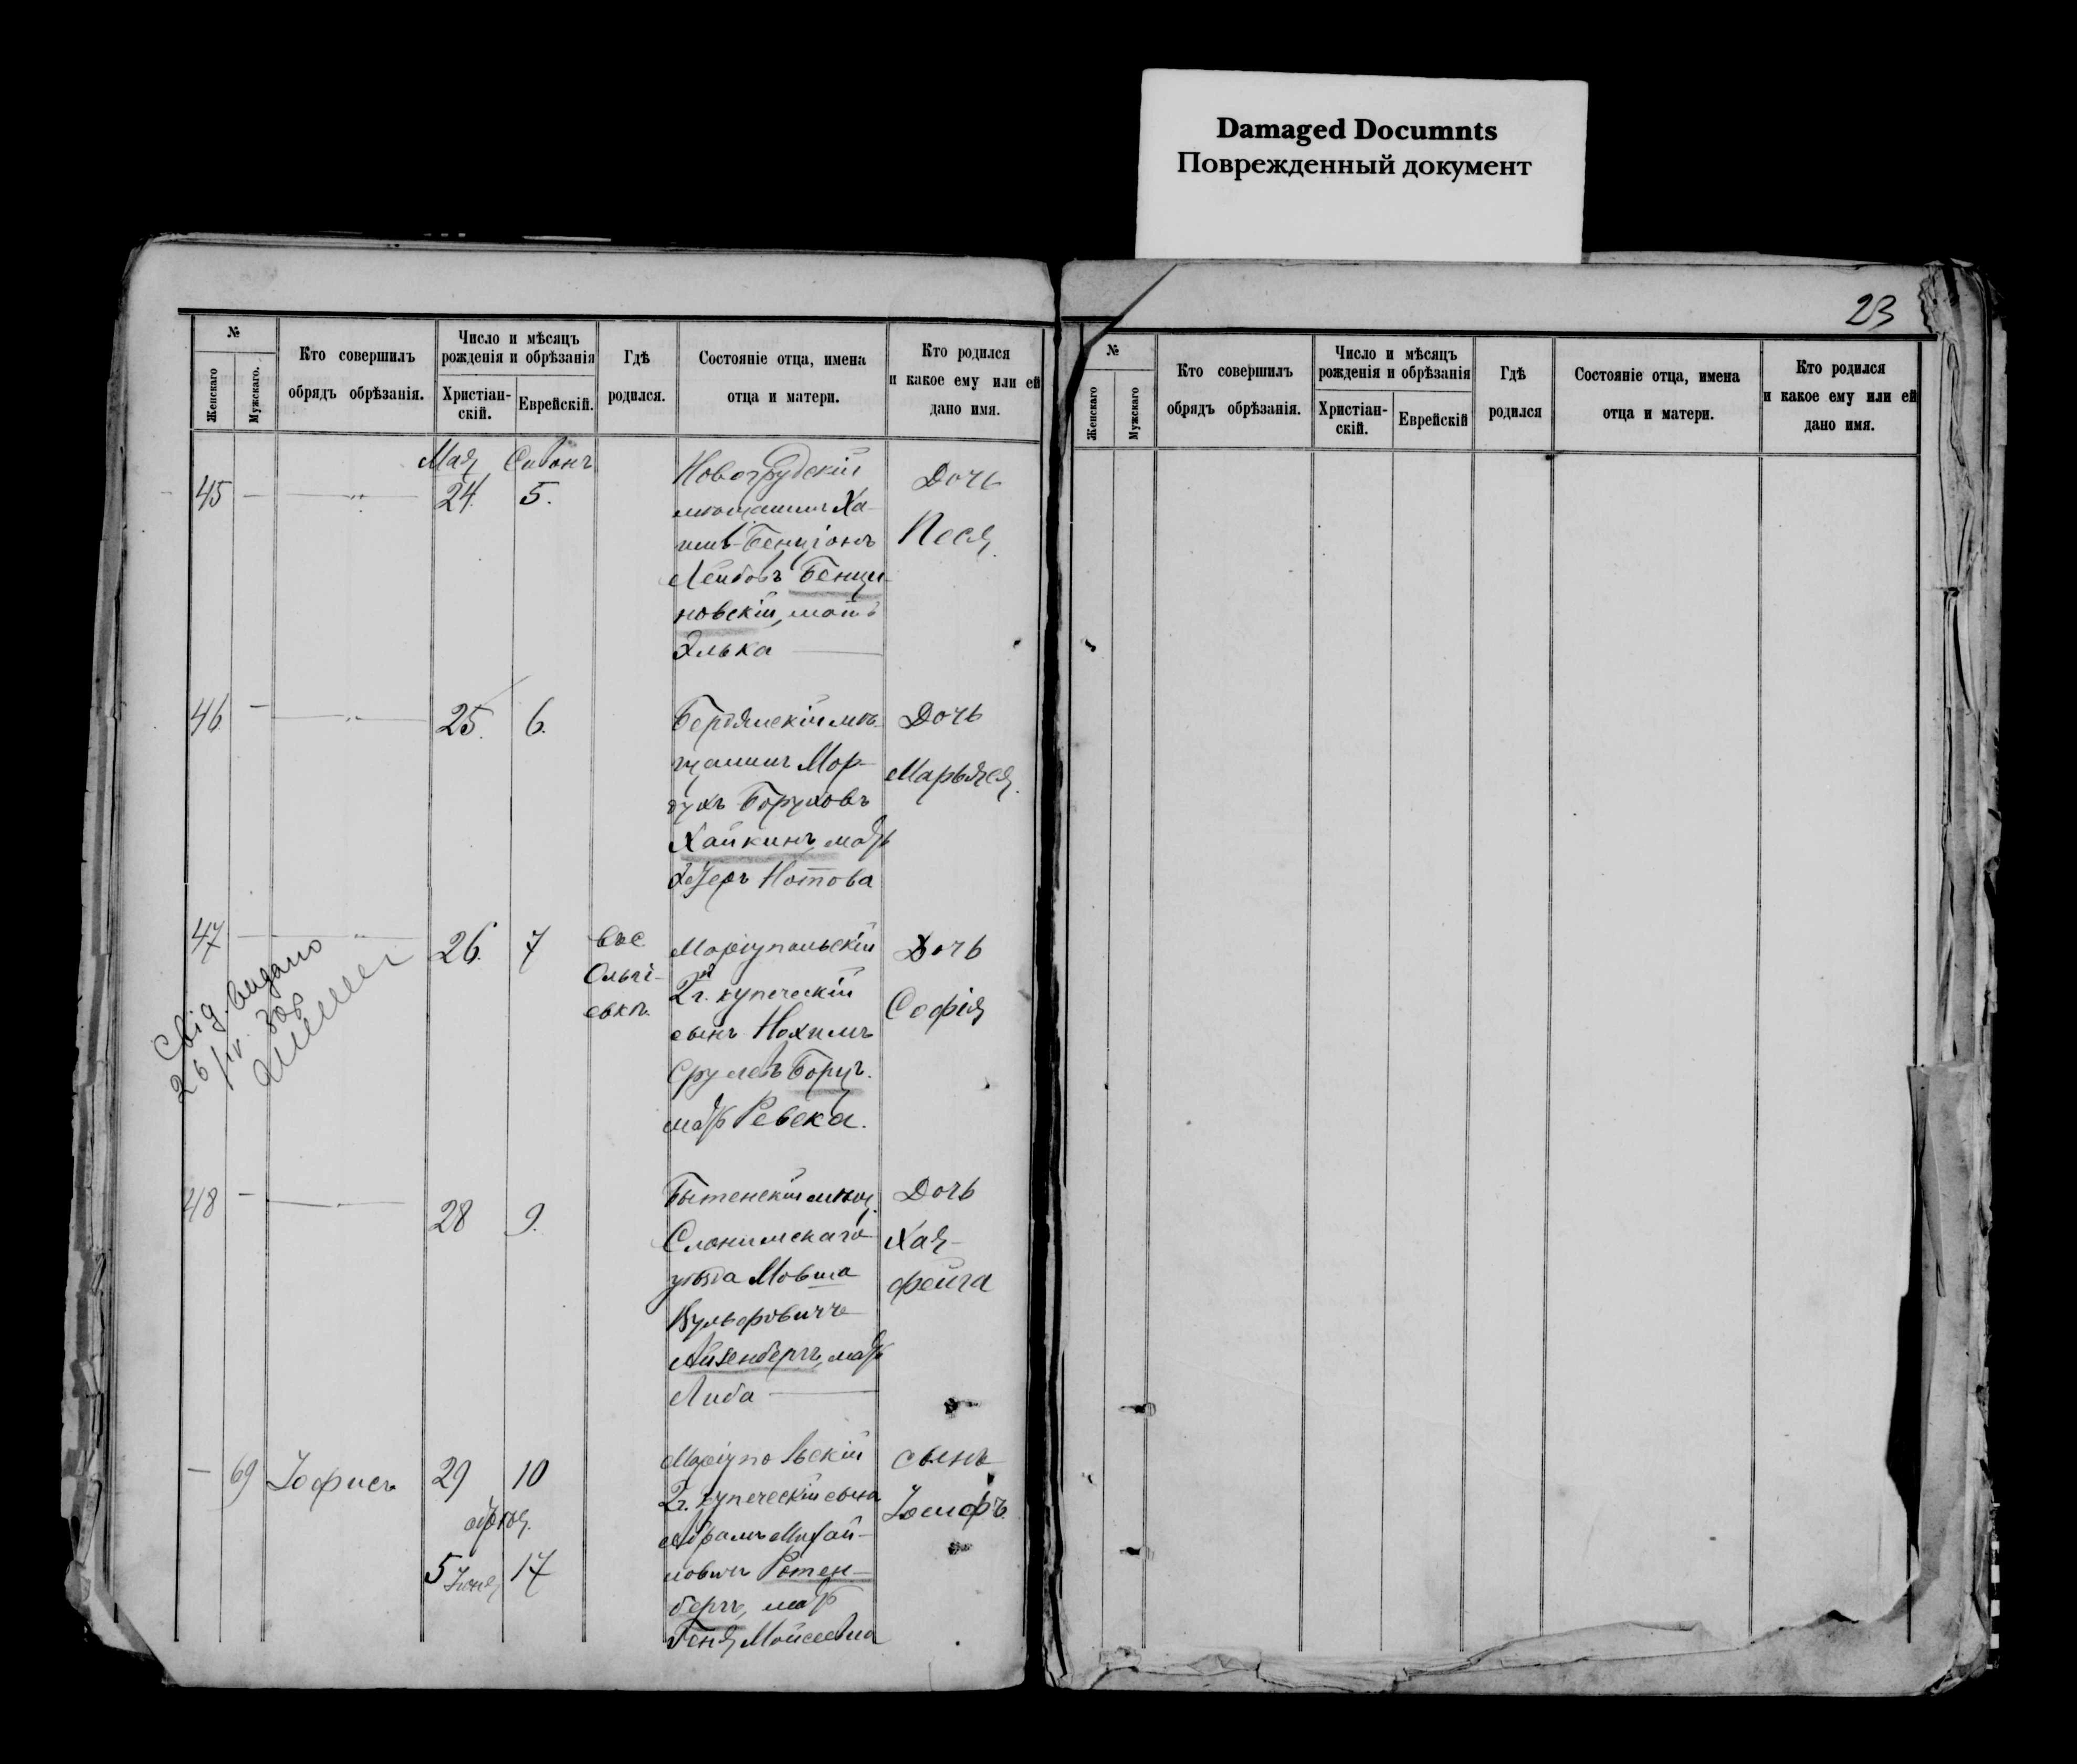 Damaged Documnts
Поврежденный документ
23
№
Женскаго
Мужскаго.
Кто совершилъ
обрядъ обрѣзанія.
Число и мѣсяцъ
рожденія и обрѣзанія
Христіан-
скій.
Еврейскій.
Гдѣ
родился.
Состояніе отца, имена
отца и матери.
Кто родился
и какое ему или ей
дано имя.
Мая Сивонъ
45 — 24. 5.
Новогрудскій
мѣщанинъ Ха-
имъ-Бенціонъ
Лейбовъ Бенци-
новскій, мать
Элька
Дочь
Песя
46 — 25. 6.
Бердянскій мѣ-
щанинъ Мор-
духъ Боруховъ
Хайкинъ, мать
Эстеръ Нотова
Дочь
Марьяся
47 26. 7
въ с.
Ольгі-
евкѣ.
Маріупольскій
2й г. купеческій
сынъ Нохимъ
Срулевъ Борцъ.
мать Ревека.
Дочь
Софія
Свід. видано
48 — 28 9.
Бытенскій мѣщ.
Слонимскаго
уѣзда Мовша
Вульфовичъ
Айзенбергъ, мать
Либа
Дочь
Хая-
фейга
— 69 Іофисъ 29 10
5 Іюня 17
Маріупольскій
2 г. купеческій сынъ
Абрамъ Михай-
ловичъ Ротен-
бергъ, мать
Геня Мойсеевна
сынъ
Іосифъ
№
Женскаго
Мужскаго
Кто совершилъ
обрядъ обрѣзанія.
Число и мѣсяцъ
рожденія и обрѣзанія
Христіан-
скій.
Еврейскій
Гдѣ
родился
Состояніе отца, имена
отца и матери.
Кто родился
и какое ему или ей
дано имя.